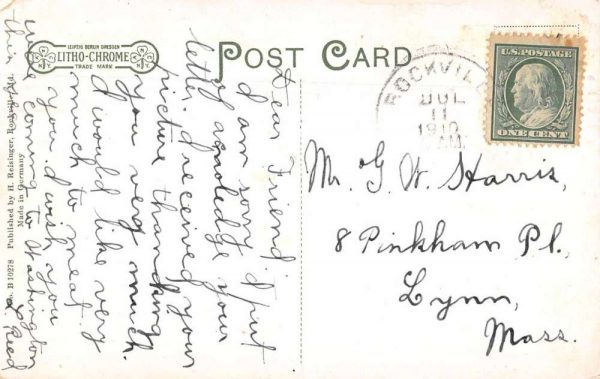 LEIPZIG BERLIN DRESDEN
LITHO-CHROME
TRADE MARK
POST CARD
ROCKVIL
JUL
11
1910
AM
U.S. POSTAGE
ONE CENT
Dear Friend.
I am sorry I put
of acnoledge your
letter. I received your
picture thanking
you very much.
I would like very
much to meat
you. I wish you
were coming to Washington
this
L Reed
Mr. G. W. Harris,
8 Pinkham Pl.,
Lynn,
Mass.
No. B 10278 Published by H. Reisinger, Rockville, Md.
Made in Germany